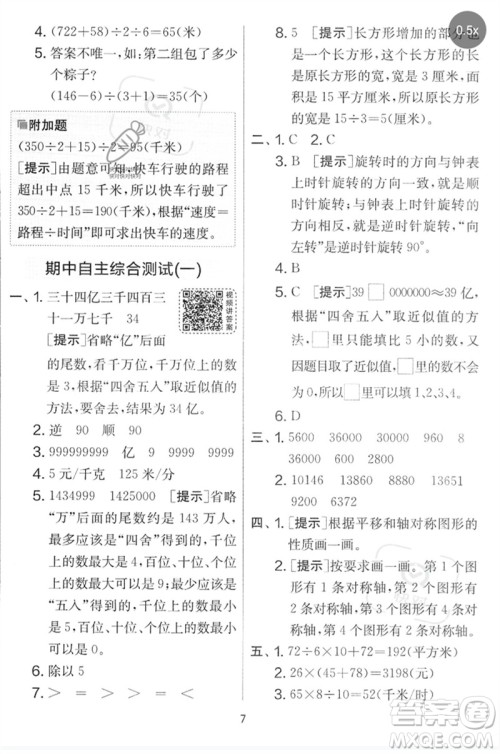 4. (722+58)÷2=390(米)
5. 答案不唯一,如,第二组包了多少
个粽子?
(146-6)÷(3+1)=35(个)
附加题
(350÷2+15)÷2=95(千米)
[提示]由题意可知,快车行驶的路程
超出中点 15 千米,所以快车行驶了
350÷2+15=190(千米),根据“速度=
路程÷时间”即可求出快车的速度。
期中自主综合测试(一)
视频讲答案
一、1. 三十四亿三千四百三
十一万七千 34
[提示]省略“亿”后面
的尾数,看千万位,千万位上的数
是 3,根据“四舍五入”取近似值的
方法,要舍去,结果为 34 亿。
2. 逆 90 顺 90
3. 999999999 亿 9 9999
4. 5 元/千克 125 千米/时
5. 1434999 1425000 [提示]省略
“万”后面的尾数约是 143 万的数,
最多应该是“四舍”得到的,千位上
的数最大是 4,百位、十位、个位上
的数最大都是 9;最少应该是
“五入”得到的,千位上的数最小
是 5,百位、十位、个位上的数最小
都是 0。
6. 除以 5
7. > = > < = <
0.5x
8. 5 [提示]长方形增加的部分也
是一个长方形,这个长方形的宽
是 3 厘米,长就是原来长方形的
长,是 15÷3=5(厘米),原来长方形
的宽就是 15÷5=3(厘米)。
二、1. C 2. C
3. B [提示]旋转时的方向与钟表
上时针旋转的方向一致,就是
顺时针旋转,旋转时的方向与钟表
上时针旋转的方向相反,就是
逆时针旋转,据此解答,所以,“向
左转”是逆时针旋转 90°。
4. B
5. C [提示]39 □ 0000000≈39
亿,根据“四舍五入”取近似值的
方法,□ 里填比 5 小的数,又
因题目要求 □ 里的数不能
填 0,所以 □ 可以填1、2、3、4。
6. D
三、1. 5600 36000 30000 6000
36 60
2. 10146 8910 8840 13651
9200 6320
四、1. [提示]根据平移和轴对称图形的
性质画一画。
2. [提示]按要求画一画。第 1 个图
形有 1 条对称轴,第 2 个图形
有 2 条对称轴,第 3 个图形有
4 条对称轴。
五、1. 72÷6×10+72=192(平方米)
2. 26×(45+78)=3198(元)
3. 24÷(8÷2)×8=48(千米)
7
答案圈
MXQE.COM